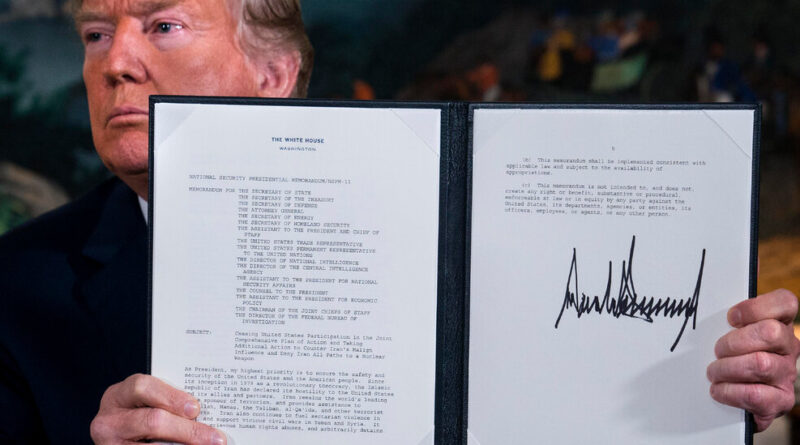 THE WHITE HOUSE
WASHINGTON
NATIONAL SECURITY PRESIDENTIAL MEMORANDUM/NSPM-11
MEMORANDUM FOR THE SECRETARY OF STATE
THE SECRETARY OF THE TREASURY
THE SECRETARY OF DEFENSE
THE ATTORNEY GENERAL
THE SECRETARY OF ENERGY
THE SECRETARY OF HOMELAND SECURITY
THE ASSISTANT TO THE PRESIDENT AND CHIEF OF
STAFF
THE UNITED STATES TRADE REPRESENTATIVE
THE UNITED STATES PERMANENT REPRESENTATIVE
TO THE UNITED NATIONS
THE DIRECTOR OF NATIONAL INTELLIGENCE
THE DIRECTOR OF THE CENTRAL INTELLIGENCE
AGENCY
THE ASSISTANT TO THE PRESIDENT FOR NATIONAL
SECURITY AFFAIRS
THE COUNSEL TO THE PRESIDENT
THE ASSISTANT TO THE PRESIDENT FOR ECONOMIC
POLICY
THE CHAIRMAN OF THE JOINT CHIEFS OF STAFF
THE DIRECTOR OF THE FEDERAL BUREAU OF
INVESTIGATION
SUBJECT: Ceasing United States Participation in the Joint
Comprehensive Plan of Action and Taking
Additional Action to Counter Iran's Malign
Influence and Deny Iran All Paths to a Nuclear
Weapon
As President, my highest priority is to ensure the safety and
security of the United States and the American people. Since
its inception in 1979 as a revolutionary theocracy, the Islamic
Republic of Iran has declared its hostility to the United States
and its allies and partners. Iran remains the world's leading
sponsor of terrorism, and provides assistance to
Hamas, the Taliban, al-Qa'ida, and other terrorist
Iran also continues to fuel sectarian violence in
and support vicious civil wars in Yemen and Syria. It
grievous human rights abuses, and arbitrarily detains
(b) This memorandum shall be implemented consistent with
applicable law and subject to the availability of
appropriations.
(c) This memorandum is not intended to, and does not,
create any right or benefit, substantive or procedural,
enforceable at law or in equity by any party against the
United States, its departments, agencies, or entities, its
officers, employees, or agents, or any other person.